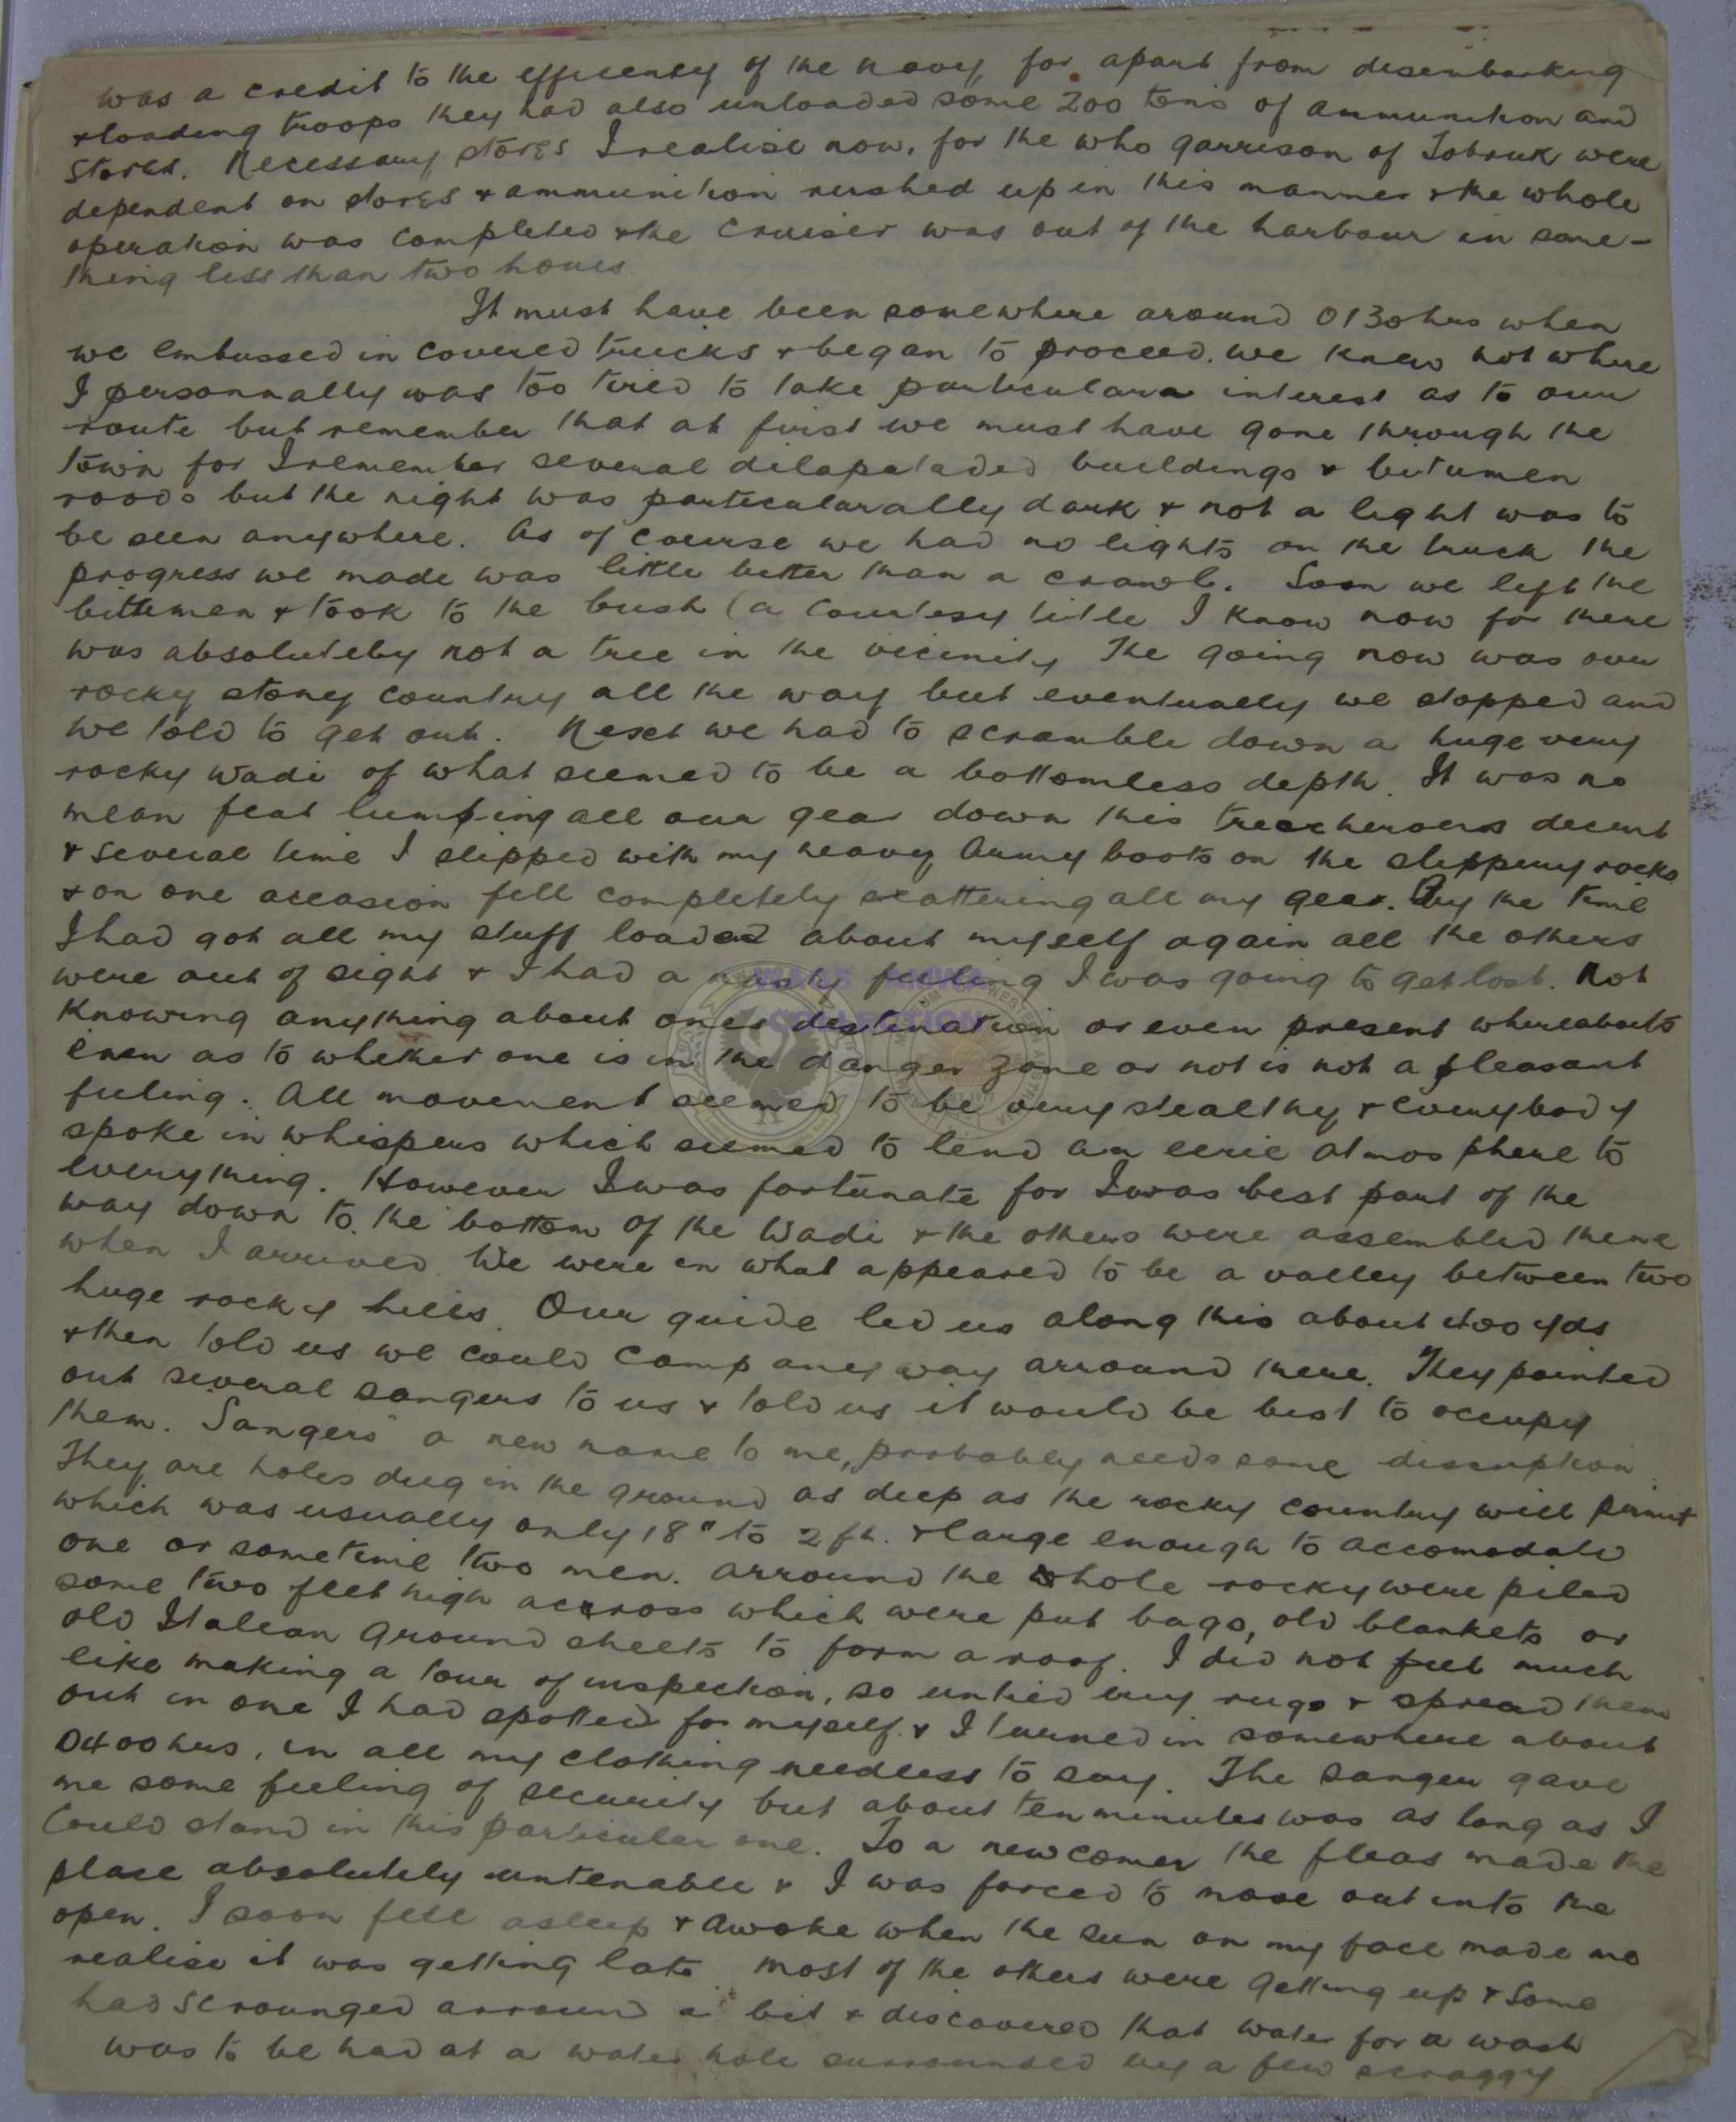 was a credit to the efficency of the navy, for apart from disembarking
& loading troops they had also unloaded some 200 tons of ammunition and
stores. Necessary stores I realise now, for the who garrison of Tobruk were
dependent on stores & ammunition rushed up in this manner & the whole
operation was completed & the cruiser was out of the harbour in some-
thing less than two hours.
It must have been somewhere around 0130 hrs when
we embussed in covered trucks & began to proceed, we knew not where
I personnally was too tired to take particulara interest as to our
route but remember that at first we must have gone through the
town for I remember several dilapataded buildings & bitumen
roads but the night was particularally dark & not a light was to
be seen anywhere. As of course we had no lights on the truck the
progress we made was little better than a crawl. Soon we left the
bittemen & took to the bush (a courtesy title I know now for there
was absoluteby not a tree in the vicinity The going now was over
rocky stoney country all the way but eventually we stopped and
we told to get out. Next we had to scramble down a huge very
rocky wadi of what seemed to be a bottomless depth. It was no
mean feat lumping all our gear down this treacherous decent
& several time I slipped with my heavy Army boots on the slippery rocks
& on one occasion fell completely scattering all my gear. By the time
I had got all my stuff loaded about myself again all the others
were out of sight & I had a nasty feeling I was going to get lost. Not
knowing anything about ones destination or even present whereabouts
even as to whether one is in the danger zone or not is not a pleasant
feeling. All movement seemed to be very stealthy & everybody
spoke in whispers which seemed to lend an eerie atmosphere to
everything. However I was fortunate for I was best part of the
way down to the bottom of the Wadi & the others were assembled there
when I arrived. We were in what appeared to be a valley between two
huge rocky hills. Our guide led us along this about 400 yds
& then told us we could camp any way arround there. They pointed
out several sangers to us & told us it would be best to occupy
them. Sangers a new name to me, probably needs some discription.
They are holes dug in the ground as deep as the rocky country will permit
which was usually only 18" to 2 ft. & large enough to accomodate
one or sometime two men. Arround the whole rocky were piled
some two feet high accross which were put bags, old blankets or
old Italian ground sheets to form a roof. I did not feel much
like making a tour of inspection, so untied my rugs & spread them
out in one I had spotted for myself & I turned in somewhere about
0400 hrs, in all my clothing needless to say. The sanger gave
me some feeling of security but about ten minutes was as long as I
could stand in this particular one. To a newcomer the fleas made the
place absolutely untenable & I was forced to move out into the
open. I soon fell asleep & awoke when the sun on my face made me
realise it was getting late. Most of the others were getting up & some
had scrounged arround a bit & discovered that water for a wash
was to be had at a water hole surrounded by a few scraggy